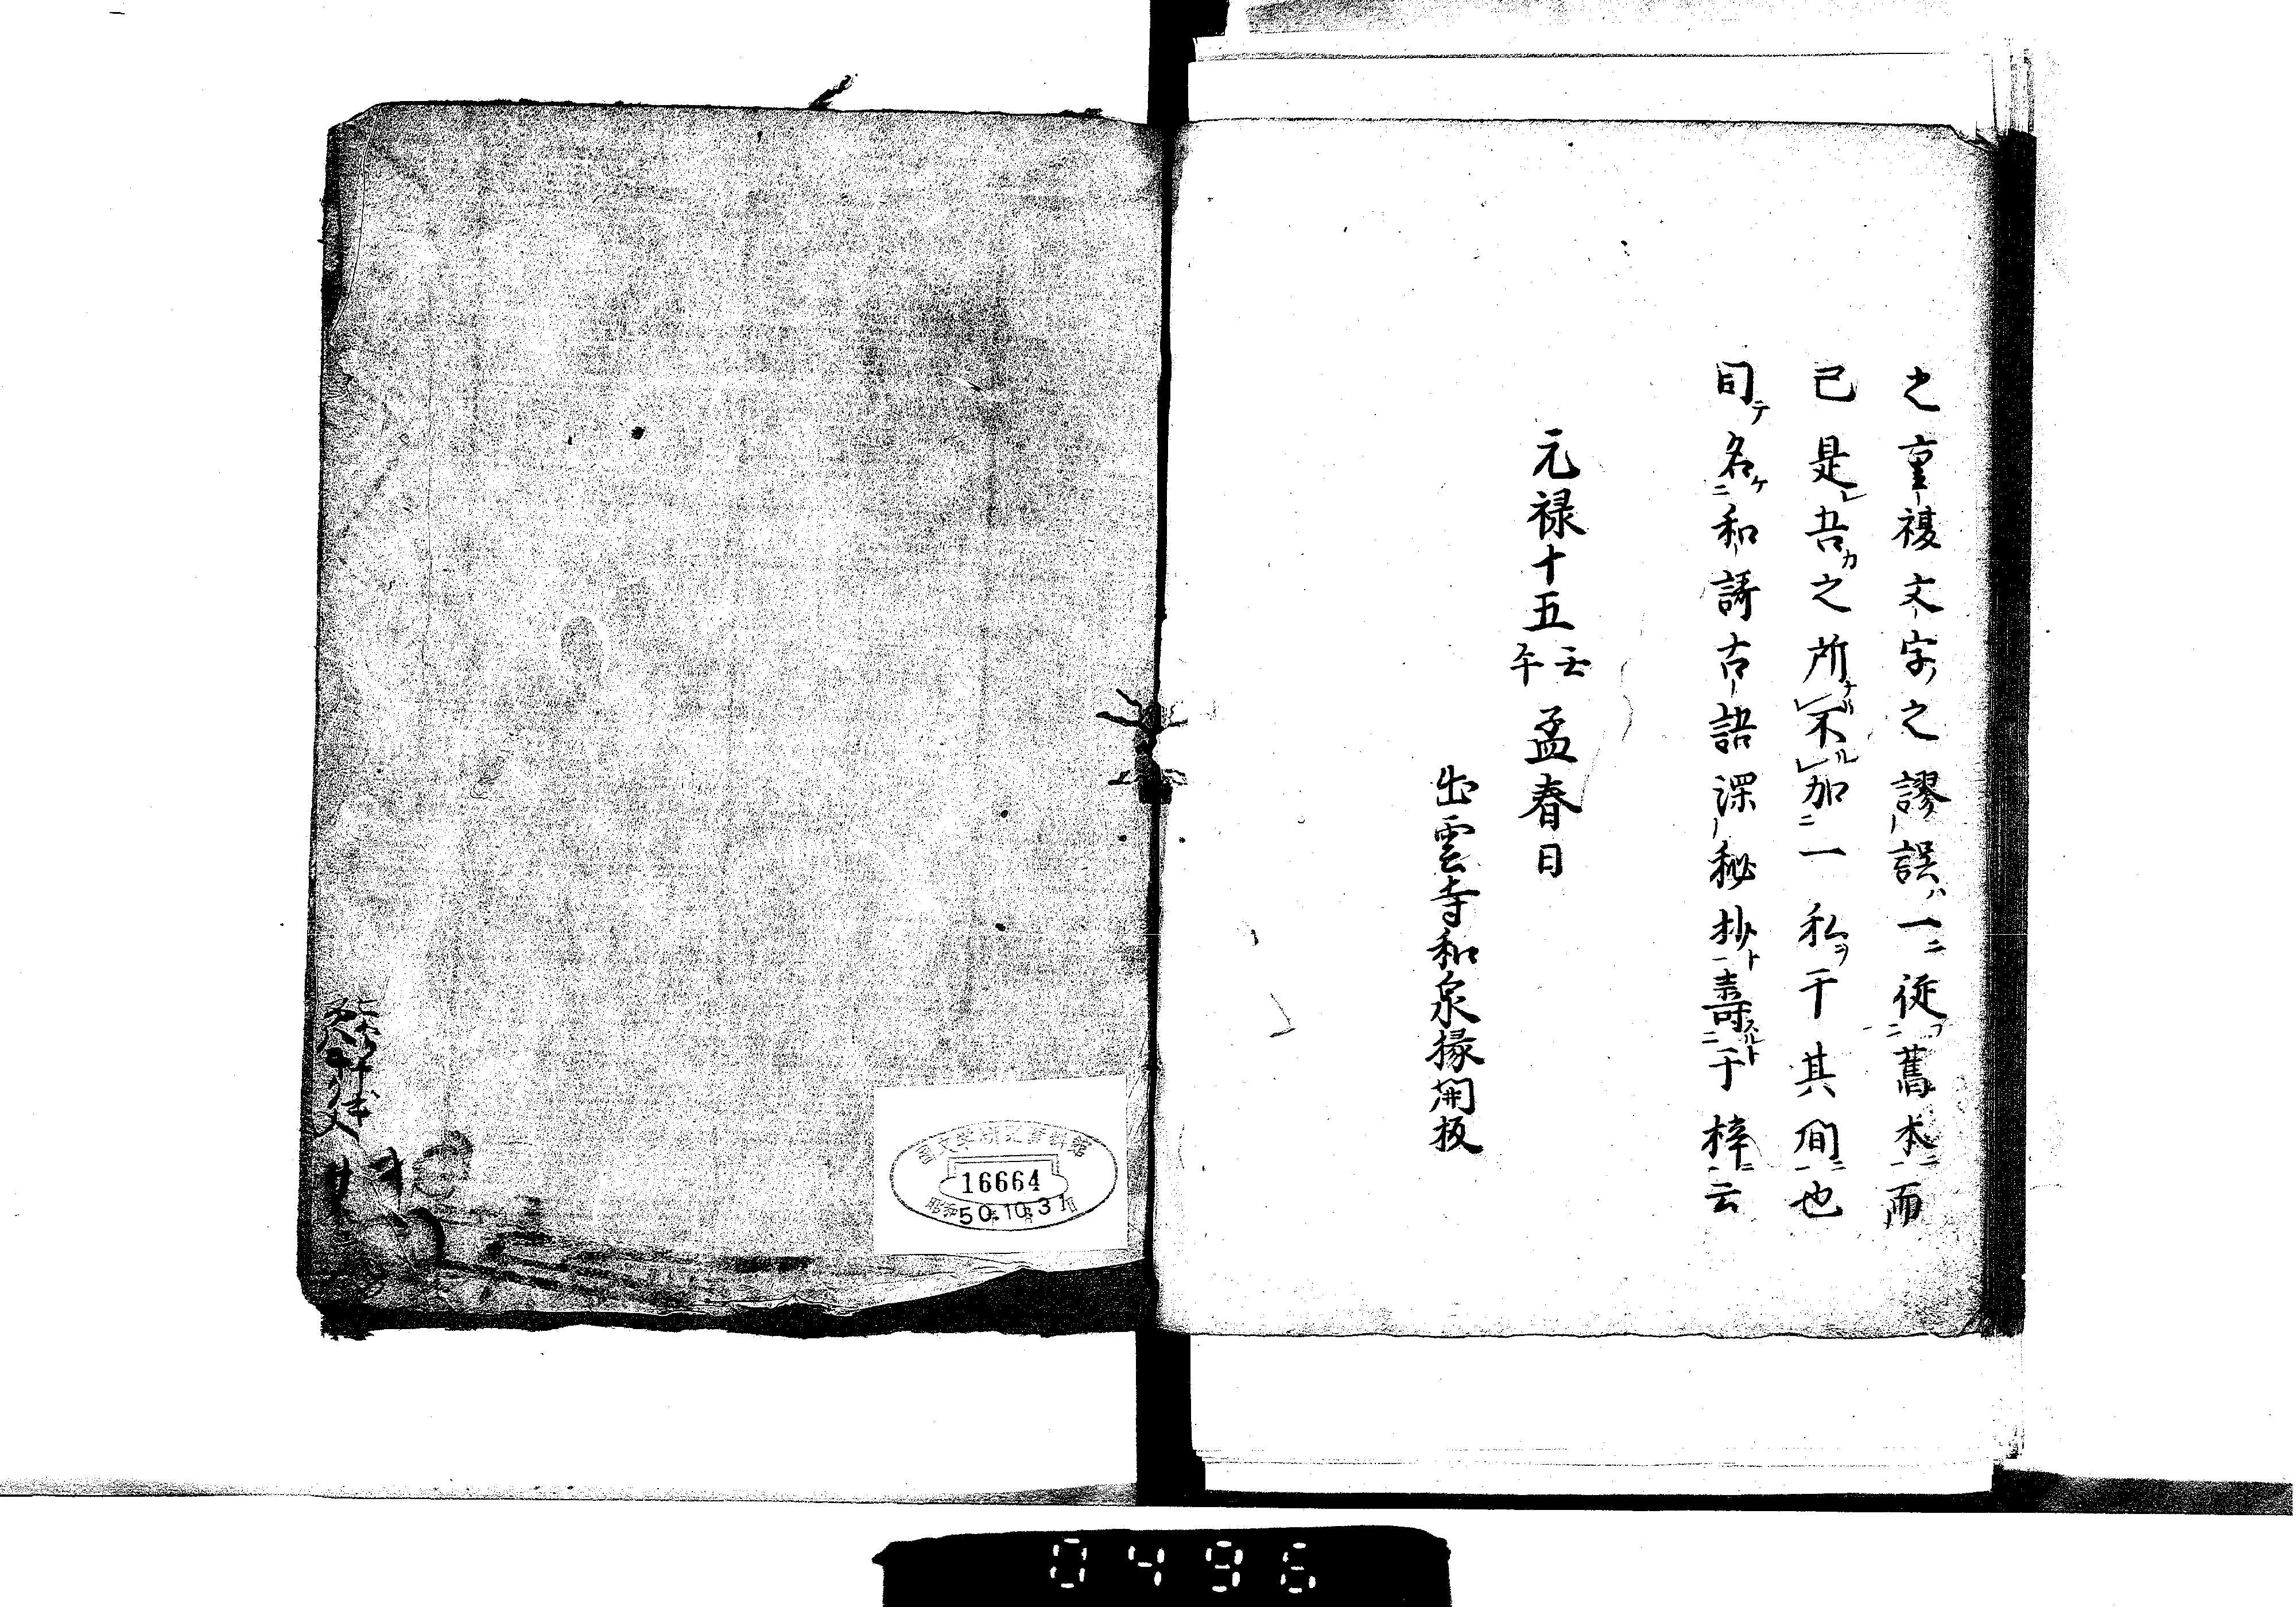 之重複文字之謬誤ハ一ニ従フニ舊本ニ一而
已是レ吾カ之所ナリレ不ルレ加ニ一私ヲ于其間ニ一也
因テ名ケニ和謌古語深秘抄ト一壽スルトニ于梓ニ一云
元禄十五壬午孟春日
出雲寺和泉掾開板
國文学研究資料館
16664
昭和50.10.31
0496